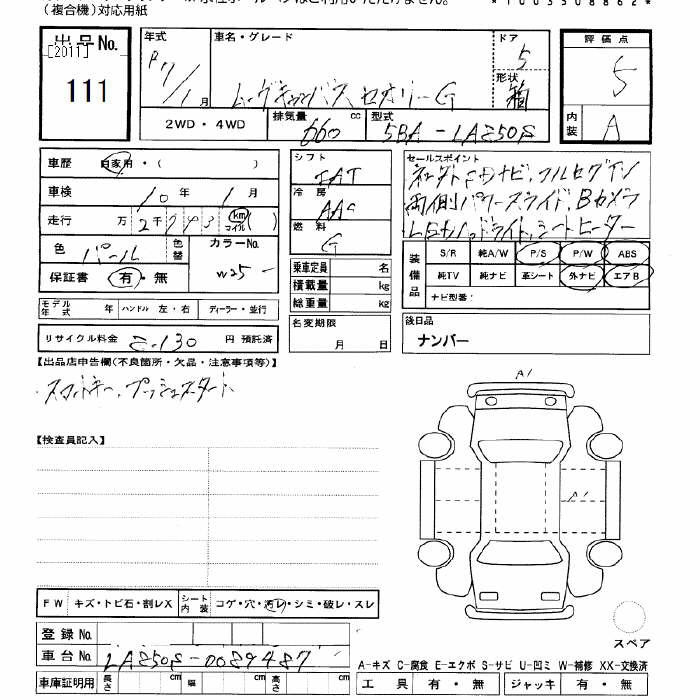 (複合機)対応用紙
*1003508862*
出品No.
[2011]
111
年式
R7/1月
車名・グレード
ムーヴキャンバス セオリーG
ドア
5
形状
箱
評価点
5
内装
A
2WD・4WD
排気量
660 cc
型式
5BA-LA850S
車歴
自家用・( )
車検
10年 1月
走行
万 2千743 km マイル ( )
色
パール
色替
カラーNo.
W25
保証書
有・無
モデル年式 年 ハンドル 左・右 ディーラー・並行
リサイクル料金 円 預託済
シフト
IAT
冷房
AAC
燃料
G
乗車定員 名
積載量 kg
総重量 kg
名変期限
月 日
セールスポイント
両側パワースライド、Bカメラ
LEDヘッドライト、シートヒーター
装備品
S/R 純A/W P/S P/W ABS
純TV 純ナビ 革シート 外ナビ エアB
ナビ型番:
後日品
ナンバー
【出品店申告欄(不良箇所・欠品・注意事項等)】
スマートキー、プッシュスタート
【検査員記入】
A1
A1
FW キズ・トビ石・割レX シート内装 コゲ・穴・汚レ・シミ・破レ・スレ
登録No.
車台No. LA850S-0089487
車庫証明用 長さ cm 幅 cm 高さ cm
スペア
A-キズ C-腐食 E-エクボ S-サビ U-凹ミ W-補修 XX-交換済
工具 有・無 ジャッキ 有・無